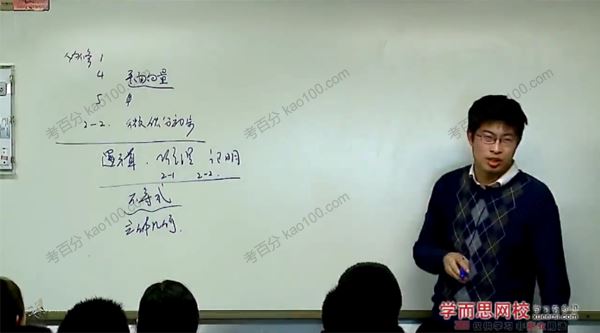 必修1
4 平面向量
5 φ
2-2. 微积分初步
逻辑, 推理 证明
2-1 2-2.
不等式
立体几何.
考百分 kao100.com
考百分 kao100.com
考百分 kao100.com
考百分 kao100.com
学而思网校
xueersi.com